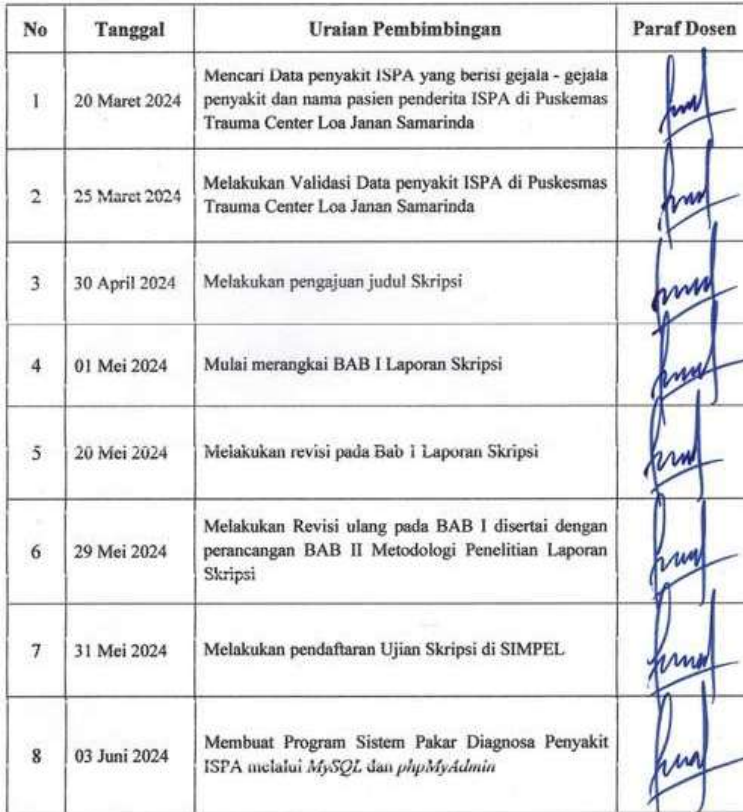 No Tanggal Uraian Pembimbingan Paraf Dosen
1 20 Maret 2024 Mencari Data penyakit ISPA yang berisi gejala - gejala
penyakit dan nama pasien penderita ISPA di Puskemas
Trauma Center Loa Janan Samarinda
2 25 Maret 2024 Melakukan Validasi Data penyakit ISPA di Puskesmas
Trauma Center Loa Janan Samarinda
3 30 April 2024 Melakukan pengajuan judul Skripsi
4 01 Mei 2024 Mulai merangkai BAB I Laporan Skripsi
5 20 Mei 2024 Melakukan revisi pada Bab 1 Laporan Skripsi
6 29 Mei 2024 Melakukan Revisi ulang pada BAB I disertai dengan
perancangan BAB II Metodologi Penelitian Laporan
Skripsi
7 31 Mei 2024 Melakukan pendaftaran Ujian Skripsi di SIMPEL
8 03 Juni 2024 Membuat Program Sistem Pakar Diagnosa Penyakit
ISPA melalui MySQL dan phpMyAdmin